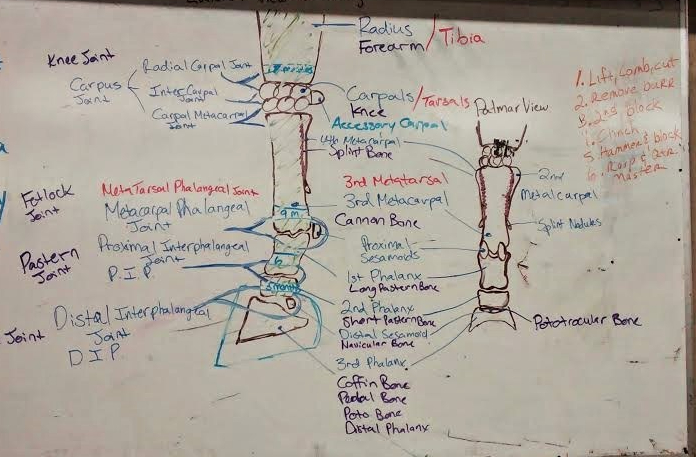 Radius
Forearm / Tibia
Knee Joint
Radial Carpal Joint
Carpus Joint
Inter Carpal Joint
Carpo Metacarpal Joint
Carpals / Tarsals
Knee
Accessory Carpal
4th Metacarpal
Splint Bone
Palmar View
1. Lift, Comb, cut
2. Remove burr
3. 2nd block
4. Clinch
5. Hammer & block
6. Rasp &
master
Fetlock Joint
MetaTarsal Phalangeal Joint
Metacarpal Phalangeal Joint
3rd Metatarsal
3rd Metacarpal
Cannon Bone
2nd
Metalcarpal
Splint Nodules
9 m
Pastern Joint
Proximal Interphalangeal Joint
P.I.P
6
Proximal
Sesamoids
1st Phalanx
Long Pastern Bone
3 months
Joint
Distal Interphalangeal Joint
D I P
2nd Phalanx
Short Pastern Bone
Distal Sesamoid
Navicular Bone
Pototrocular Bone
3rd Phalanx
Coffin Bone
Pedal Bone
Poto Bone
Distal Phalanx